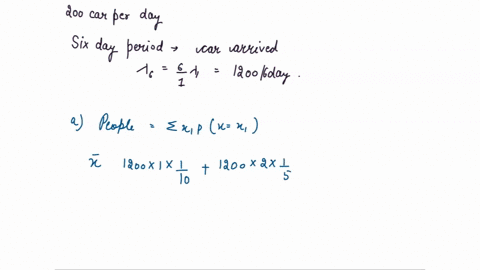 200 car per day
Six day period → car arrived
λ₆ = 6/1 λ₁ = 1200/6day .
a) People = Σ x₁ p ( x = x₁ )
x̄ 1200 × 1 × 1/10 + 1200 × 2 × 1/5